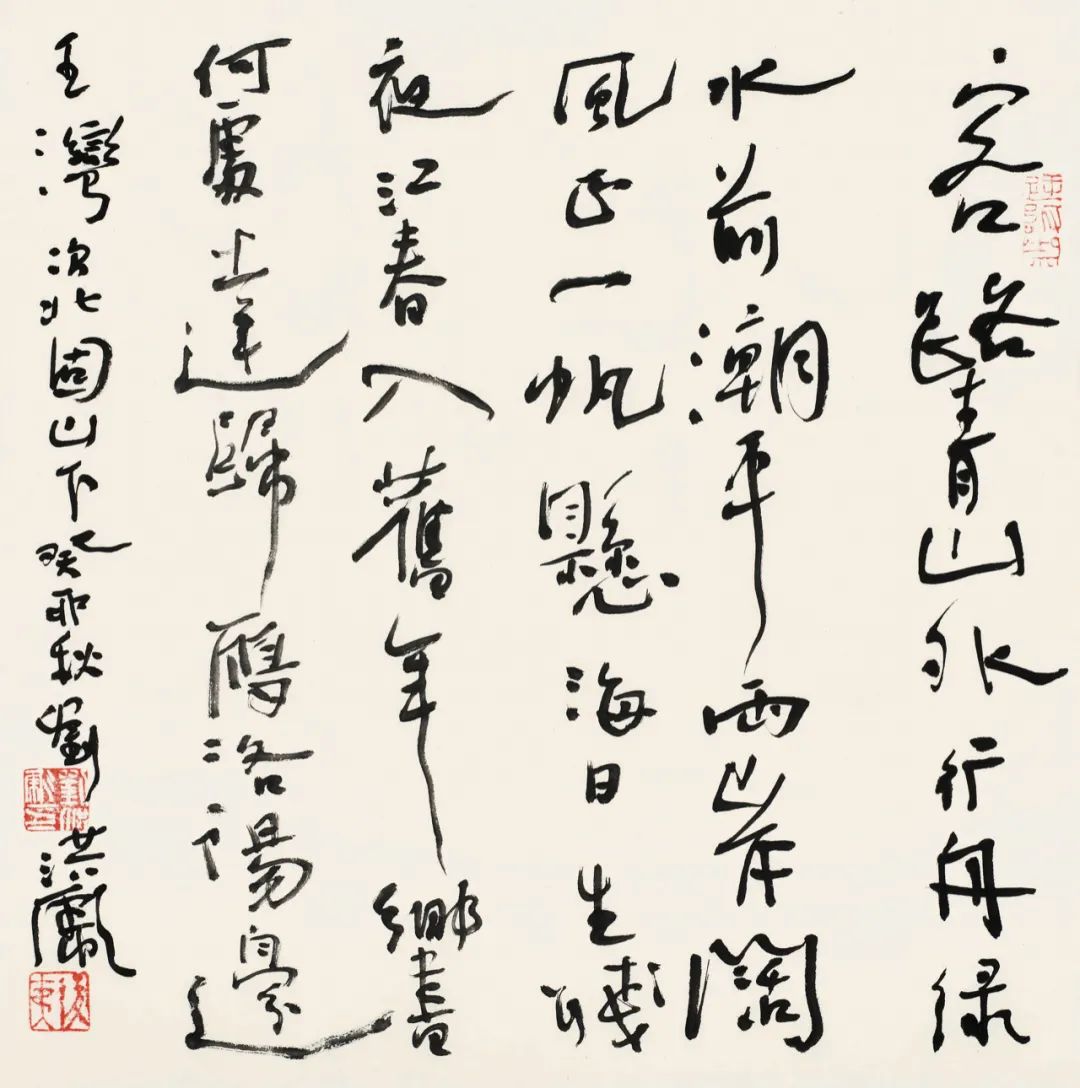 客路青山外行舟绿
水前潮平兩岸闊
風正一帆懸海日生殘
夜江春入舊年鄉書
何處達歸鴈洛陽邊
王灣次北固山下癸卯秋劉洪彪